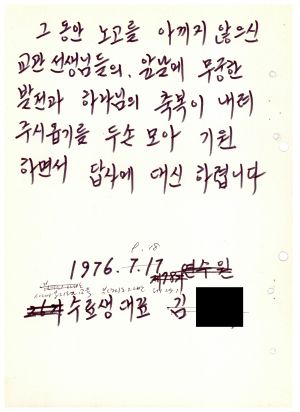 그 동안 노고를 아끼지 않으신
교관 선생님들의, 앞날에 무궁한
발전과 하나님의 축복이 내려
주시옵기를 두손 모아 기원
하면서 답사에 대신 하렵니다
9.18
1976. 7.17 연수원
수료생 대표 김